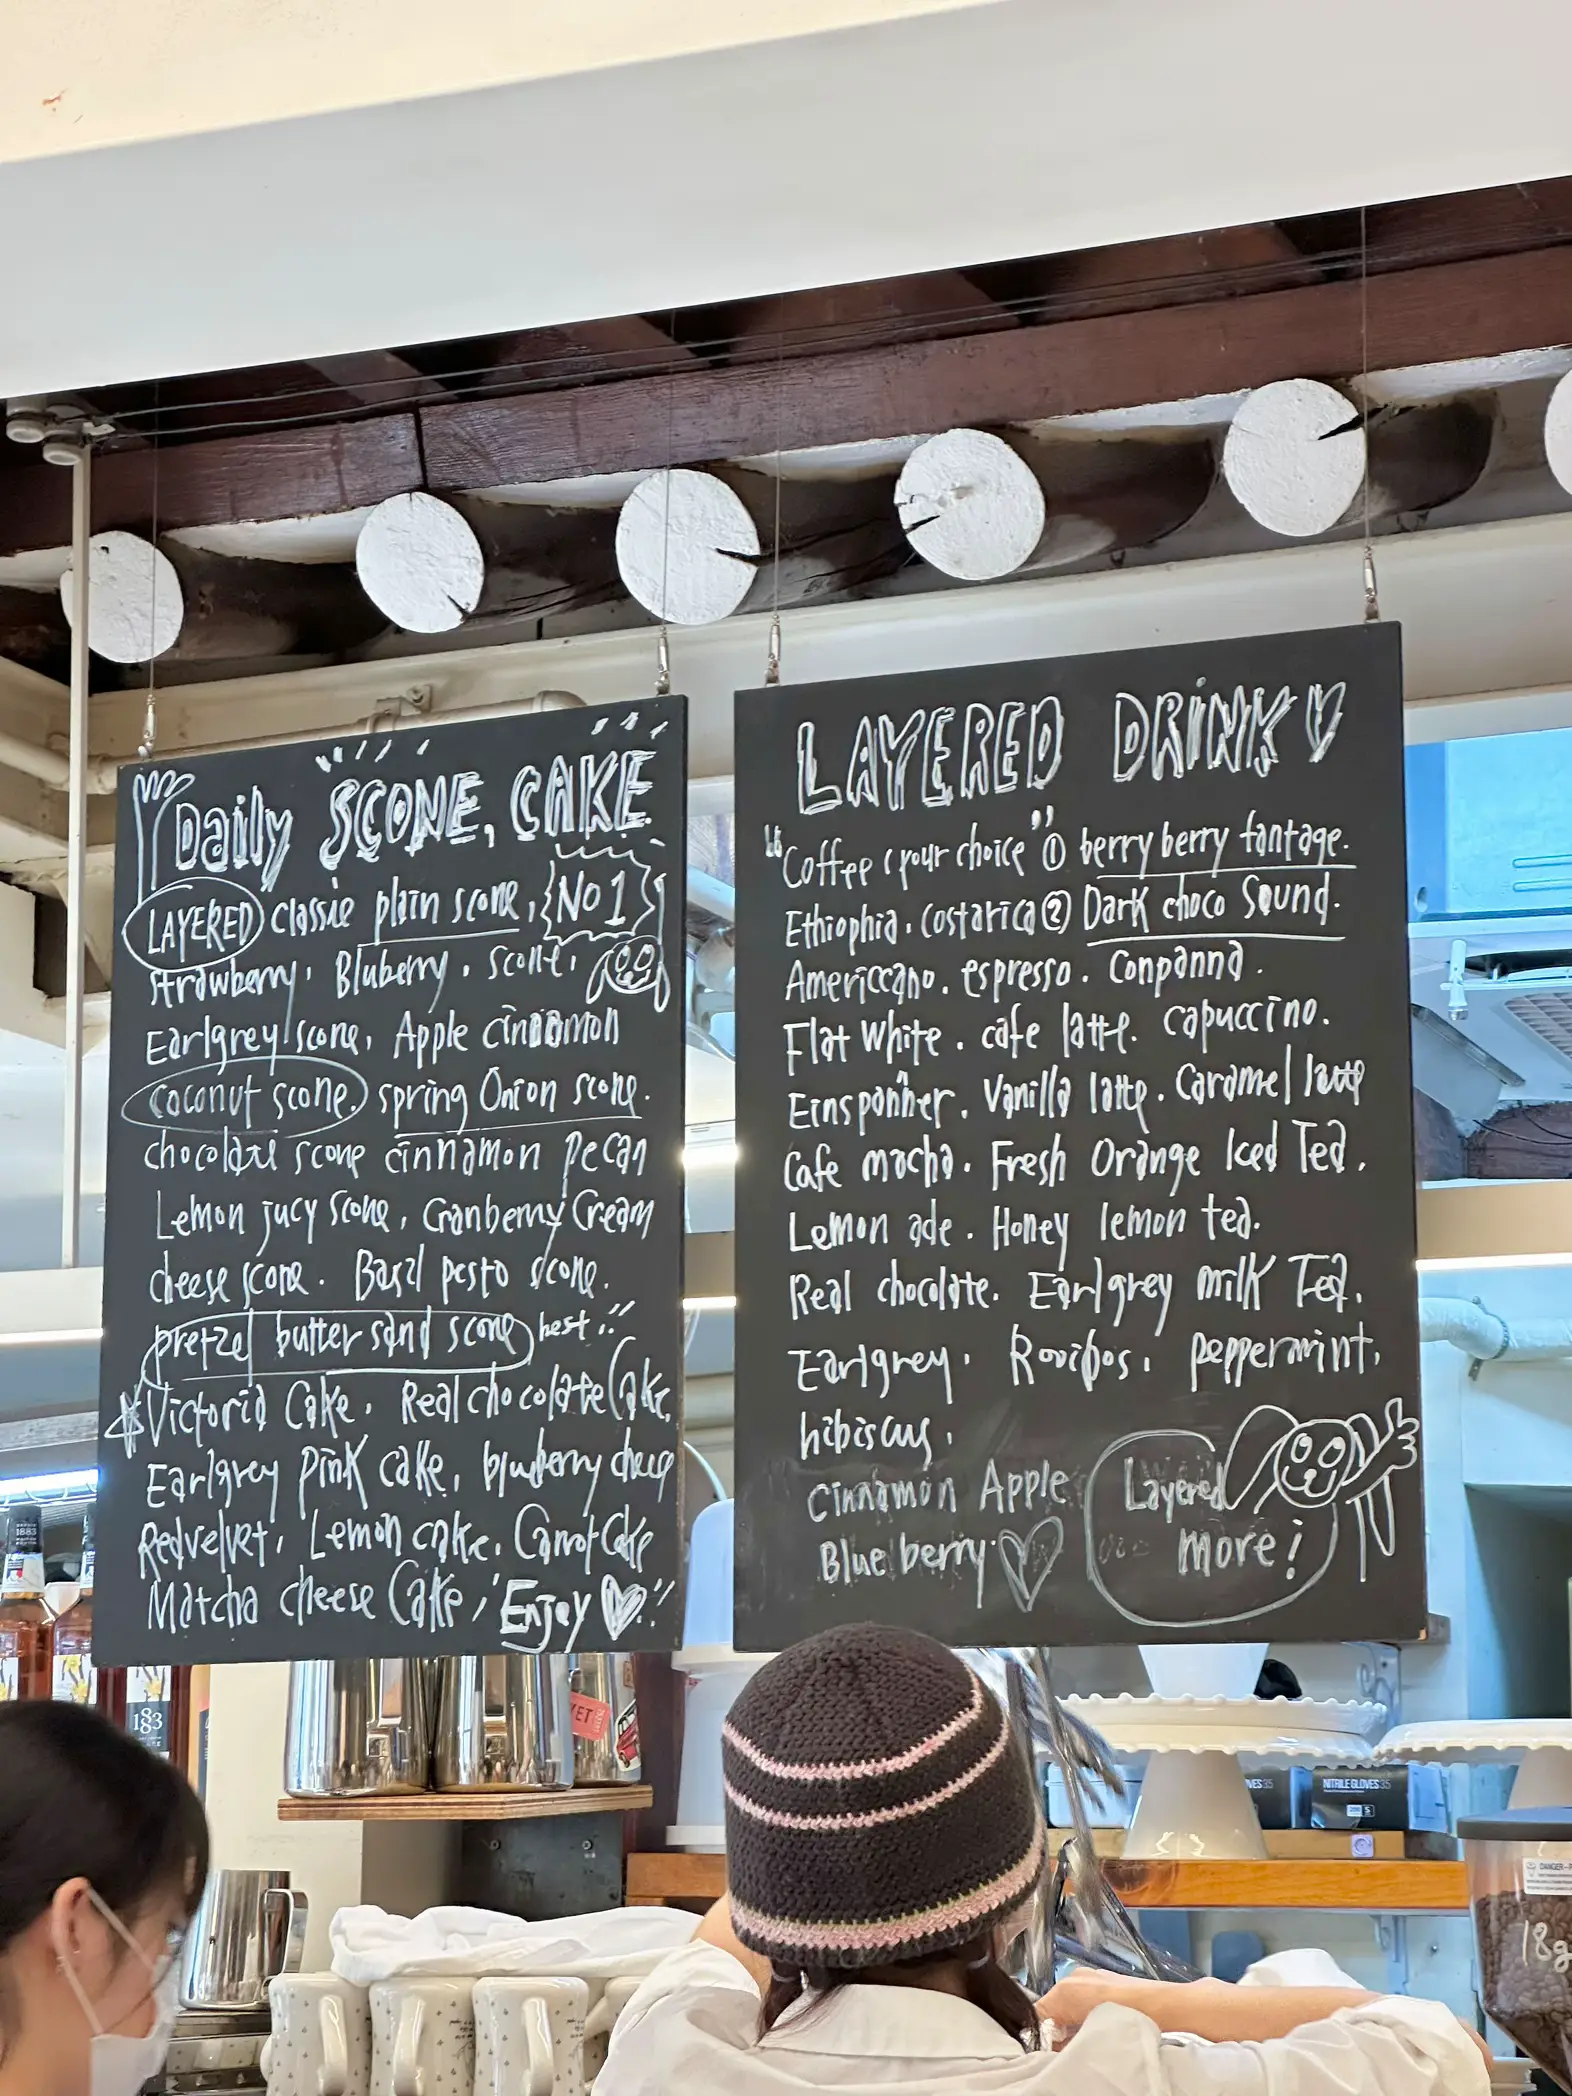 Daily SCONE, CAKE
LAYERED classic plain scone, No 1
strawberry, Bluberry, scone,
Earlgrey scone, Apple cinnamon
coconut scone, spring Onion scone.
chocolate scone cinnamon pecan
Lemon jucy scone, Cranberry Cream
cheese scone. Basil pesto scone.
pretzel butter sand scone best!!
Victoria Cake, Real chocolate Cake,
Earlgrey pink cake, blueberry cheese
Redvelvet, Lemon cake, Carrot Cake
Matcha cheese Cake, Enjoy
LAYERED DRINK
"Coffee (your choice" ① berry berry fantage.
Ethiophia. Costarica ② Dark choco Sound.
Americcano. espresso. Conpanna.
Flat White. cafe latte. capuccino.
Einspanner. Vanilla latte. Caramel latte
Cafe mocha. Fresh Orange Iced Tea.
Lemon ade. Honey lemon tea.
Real chocolate. Earlgrey milk Tea.
Earlgrey. Rooibos. peppermint.
hibiscus.
Cinnamon Apple
Blue berry.
Layered
more!
1883
1883
NITRILE GLOVES 35
DANGER
18g